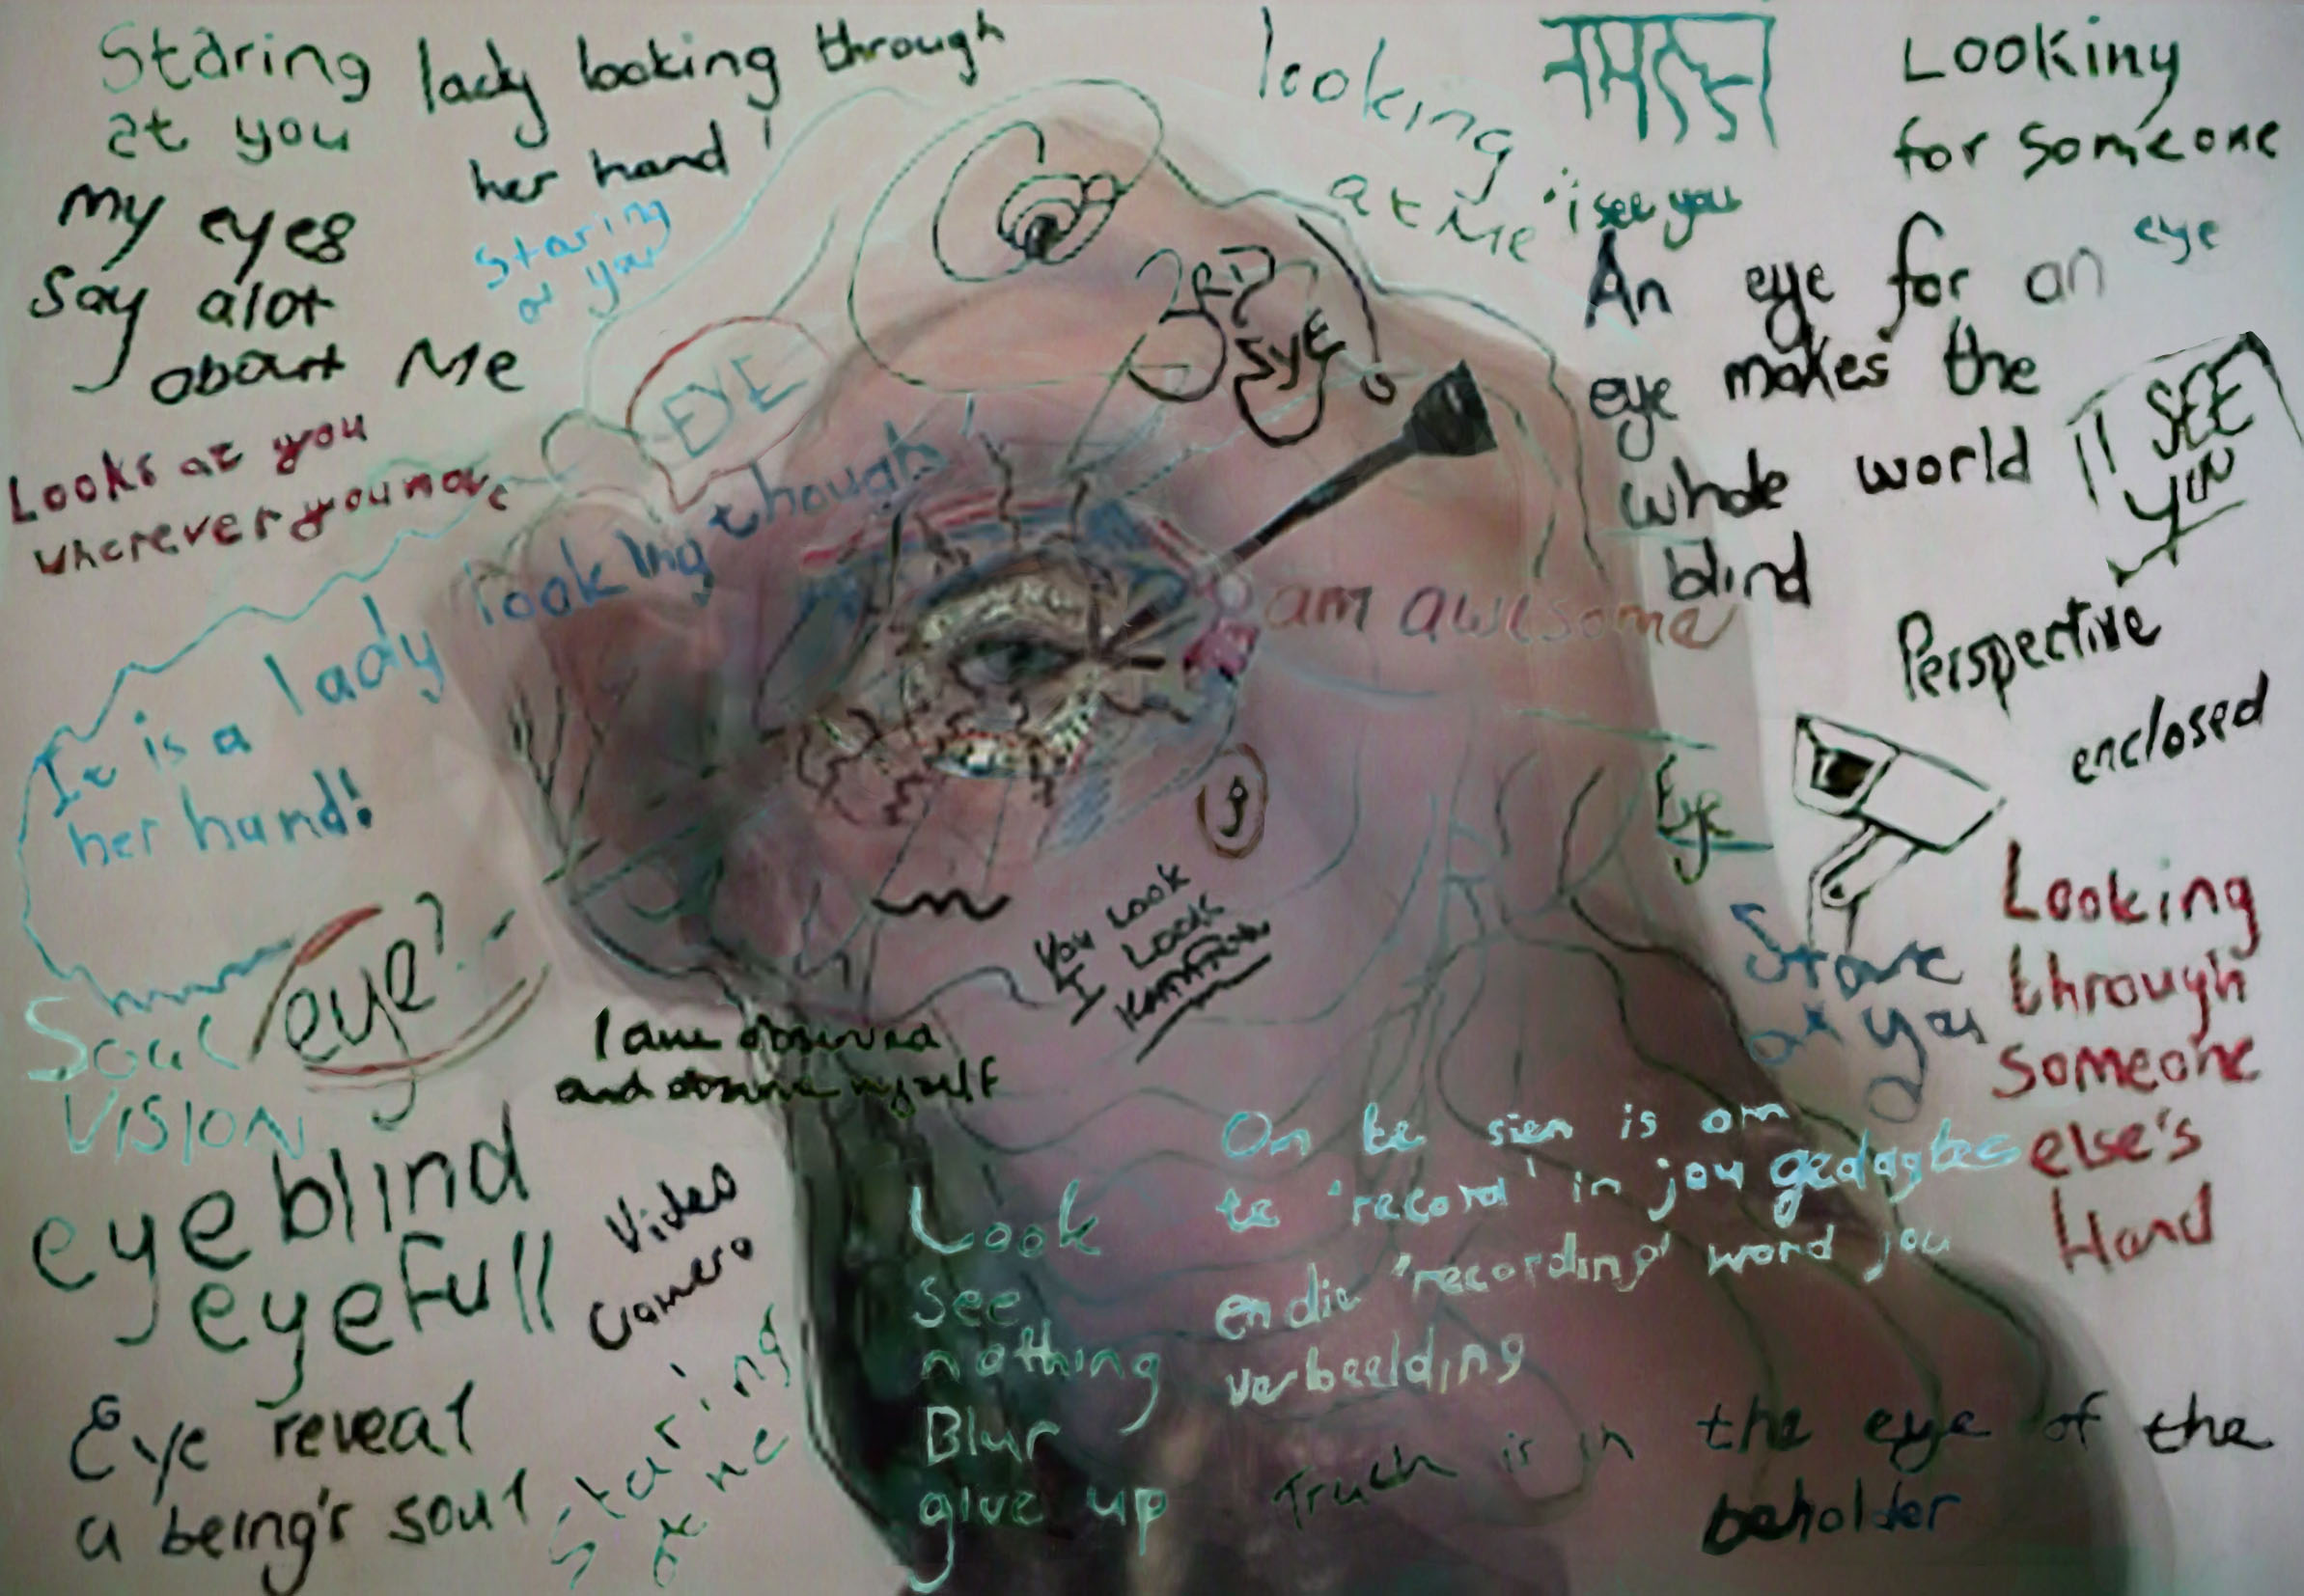 Staring
at you
lady looking through
her hand!
Staring
at you
looking
at Me
नमस्ते
"i see you
Lookiny
for someone
my eyes
Say alot
about Me
EYE
3RD
EYE
An eye for an eye
eye makes the
whole world
blind
I SEE
YOU
Looks at you
wherever you move
It is a lady looking though
her hand!
am awesome
Perspective
enclosed
Eye
You Look
I Look
eye?
Soul
VISION
I am observed
and observe myself
Stare
at you
Looking
through
someone
else's
Hand
eye blind
eyefull
Video
Camera
Look
see
nothing
Blur
give up
Om te sien is om
te 'record' in jou gedagtes
en die 'recording' word jou
verbeelding
Eye reveal
a being's soul
Staring
at me
Truth is in the eye of the
beholder